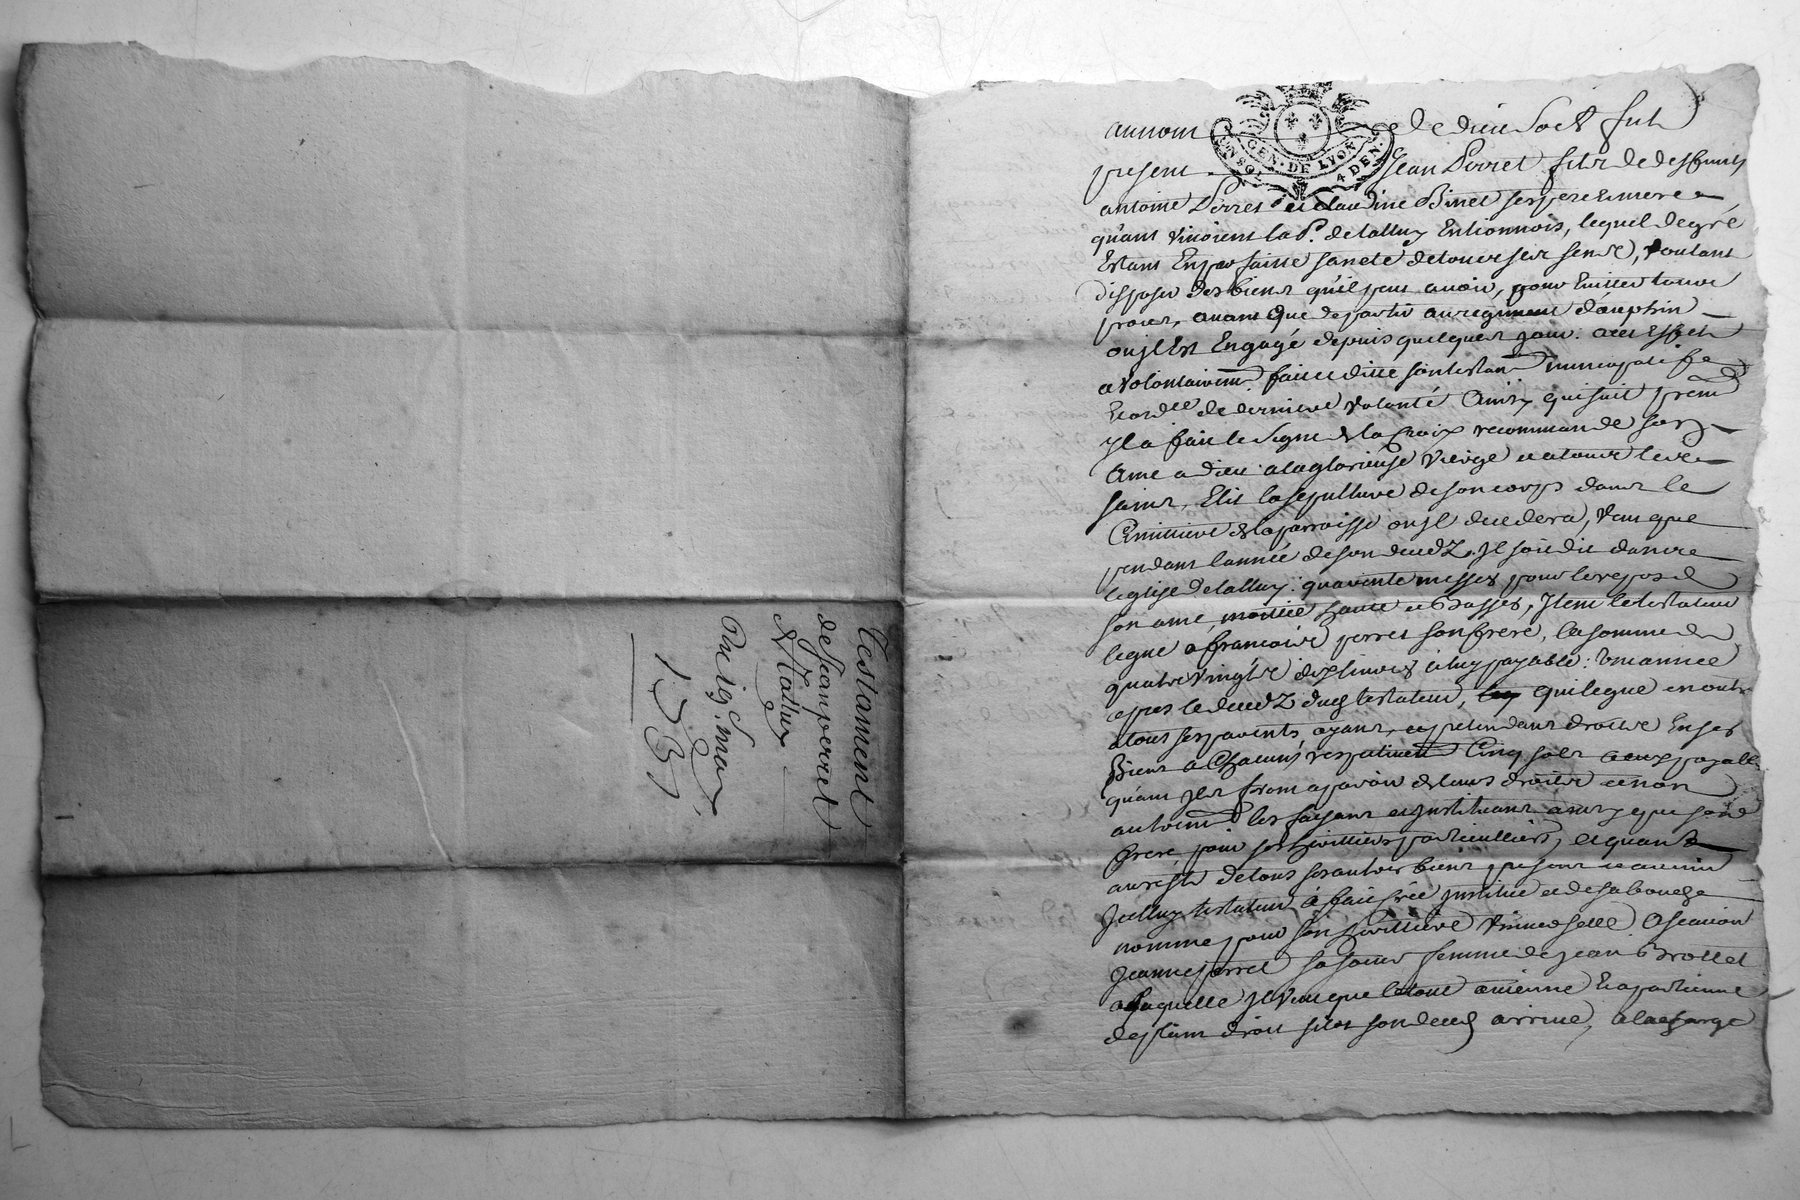 Testament
de Jean perret
d'Hallux
Du 19e. mar
1737
UN SOL GEN. DE LYON 4 DEN.
au nom de dieu soit fut
present Jean Perret fils de deffunts
antoine Perret et claudine Binet ses pere et mere
quant vivoient la p. de lalluy En lionnois, lequel de gré
Estant En parfaitte santé de tous ses sens, voulant
disposer des biens qu'il peut avoir, pour Eviter toutte
proces, avant que de partir au regiment d'auphin
ou jl Est Engagé depuis quelques jour. a cet Effet
a volontairemt. fait et ditte son testamt nuncupatif
Et ordce de derniere volonté Ainsy que suit premt
jl a fait le signe de la Croix recommande son
Ame a dieu a la glorieuse vierge et a tous les
saints, Elit la sepulture de son corps dans le
Cimittiere de la parroisse ou jl decedera, veut que
pendant l'année de son decedz, jl soit dit dans
leglise de lalluy quarente messes pour le repos de
son ame, moitié haute et Basses, Jtem le testateur
legue a francois perret son frere, la somme de
quatre vingts dix livres a luy payable une année
apres le decedz dud testateur, qui legue en outre
a tous ses parents ayant, et pretendant droits En ses
Biens a Chacuns respectivemt Cinq sols a eux payable
quant jls feront aparoir de leurs droits et non
autremt les faisant et jnstituant avec que sond
frere, pour ses heritiers particulliers, et quand
au reste de tous ses autres biens presents et avenir
Jcelluy testateur a fait creé jnstitué et de sa bouche
nommé pour son heritiere universelle a scavoir
Jeanne perret sa soeur femme de jean Brottet
a laquelle jl veut que le tout avienne Et apartienne
de plain droit sitost son deced arrivé, a la charge